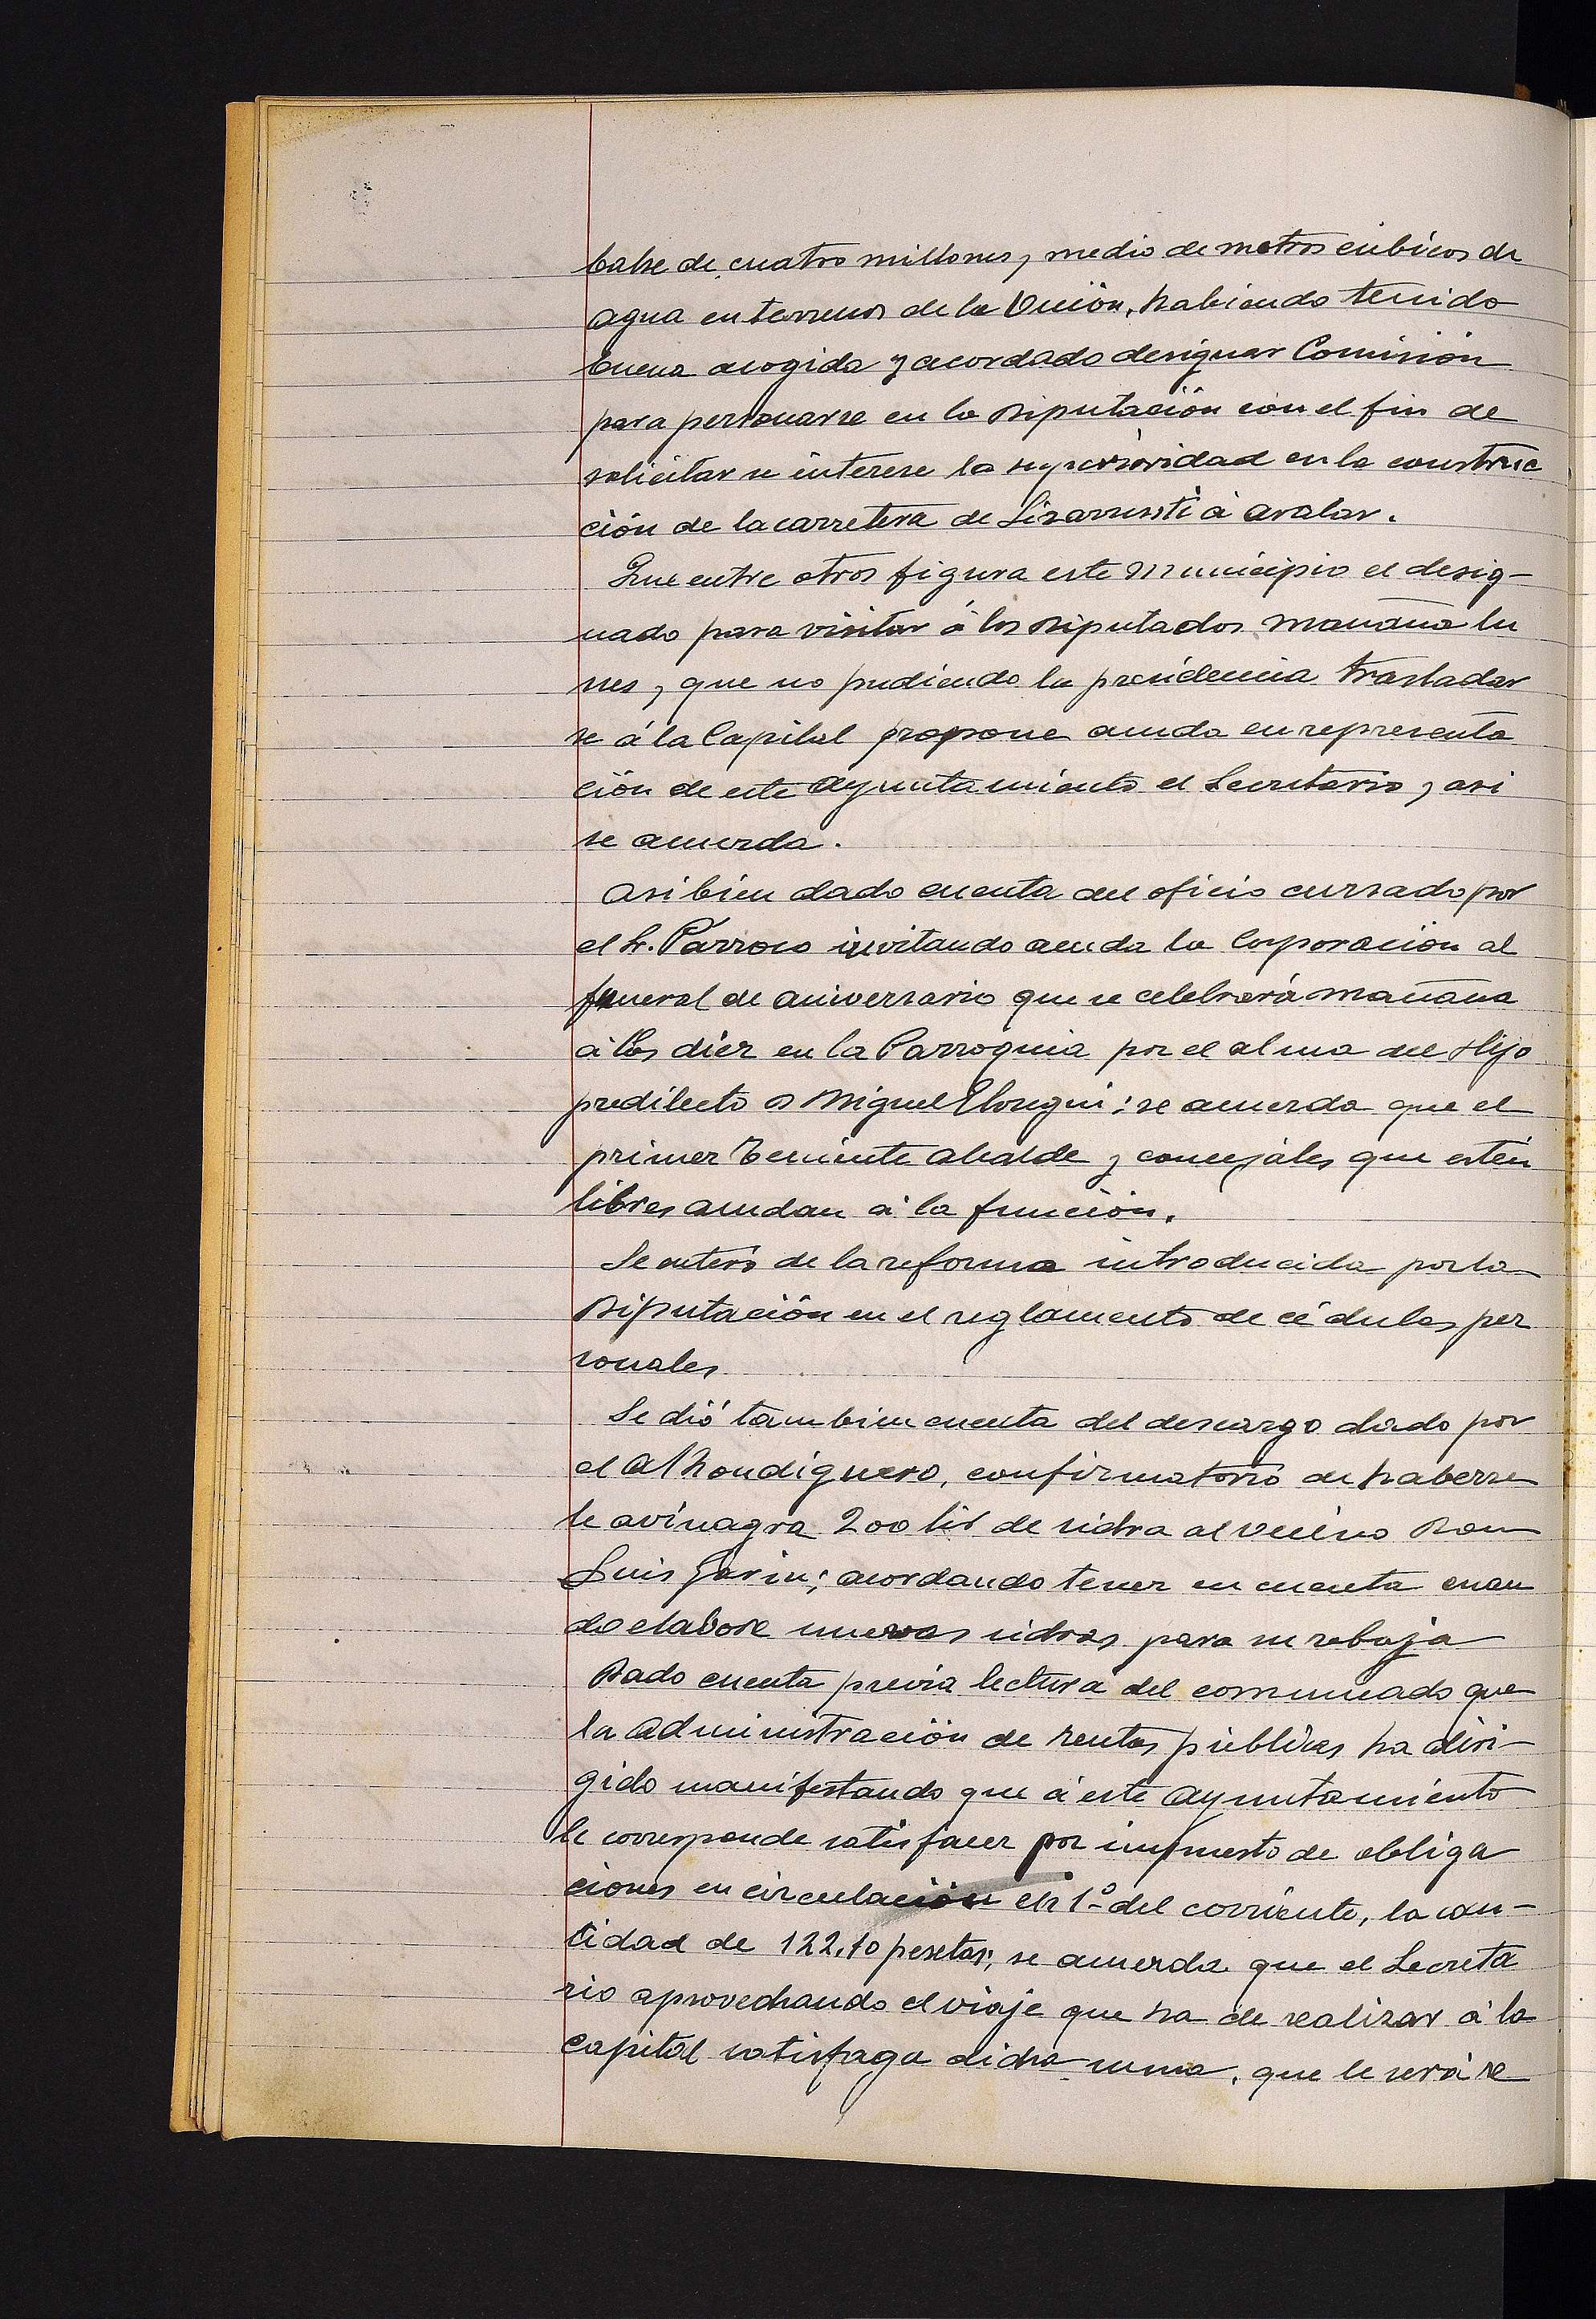 balse de cuatro millones y medio de metros cúbicos de
agua en terrenos de la Unión, habiendo tenido
buena acogida y acordado designar Comisión
para personarse en la Diputación con el fin de
solicitar se interese la superioridad en la construc
ción de la carretera de Lizarrusti á Aralar.
Que entre otros figura este Municipio el desig-
nado para visitar á los Diputados mañana lu
nes, y que no pudiendo la presidencia trasladar
se á la Capital propone acuda en representa
ción de este Ayuntamiento el Secretario y asi
se acuerda.
Asi bien dado cuenta del oficio cursado por
el Sr. Párroco invitando acuda la Corporación al
funeral de aniversario que se celebrará mañana
á las diez en la Parroquia por el alma del Hijo
predilecto D Miguel Elougui; se acuerda que el
primer Teniente alcalde y concejales que estén
libres acudan á la función.
Se enteró de la reforma introducida por la
Diputación en el reglamento de cédulas per
sonales
Se dió tambien cuenta del descargo dado por
el Alhondiguero, confirmatorio de haberse
le avinagra 200 lit de sidra al vecino Don
Luis Garin; acordando tener en cuenta cuan
do elabore nuevas sidras para su rebaja
Dado cuenta previa lectura del comunicado que
la administración de rentas públicas ha diri-
gido manifestando que á este Ayuntamiento
le corresponde satisfacer por impuesto de obliga
ciones en circulación en 1º del corriente, la can-
tidad de 122,10 pesetas; se acuerda que el Secreta
rio aprovechando el viaje que ha de realizar á la
Capital satisfaga dicha suma, que le será re